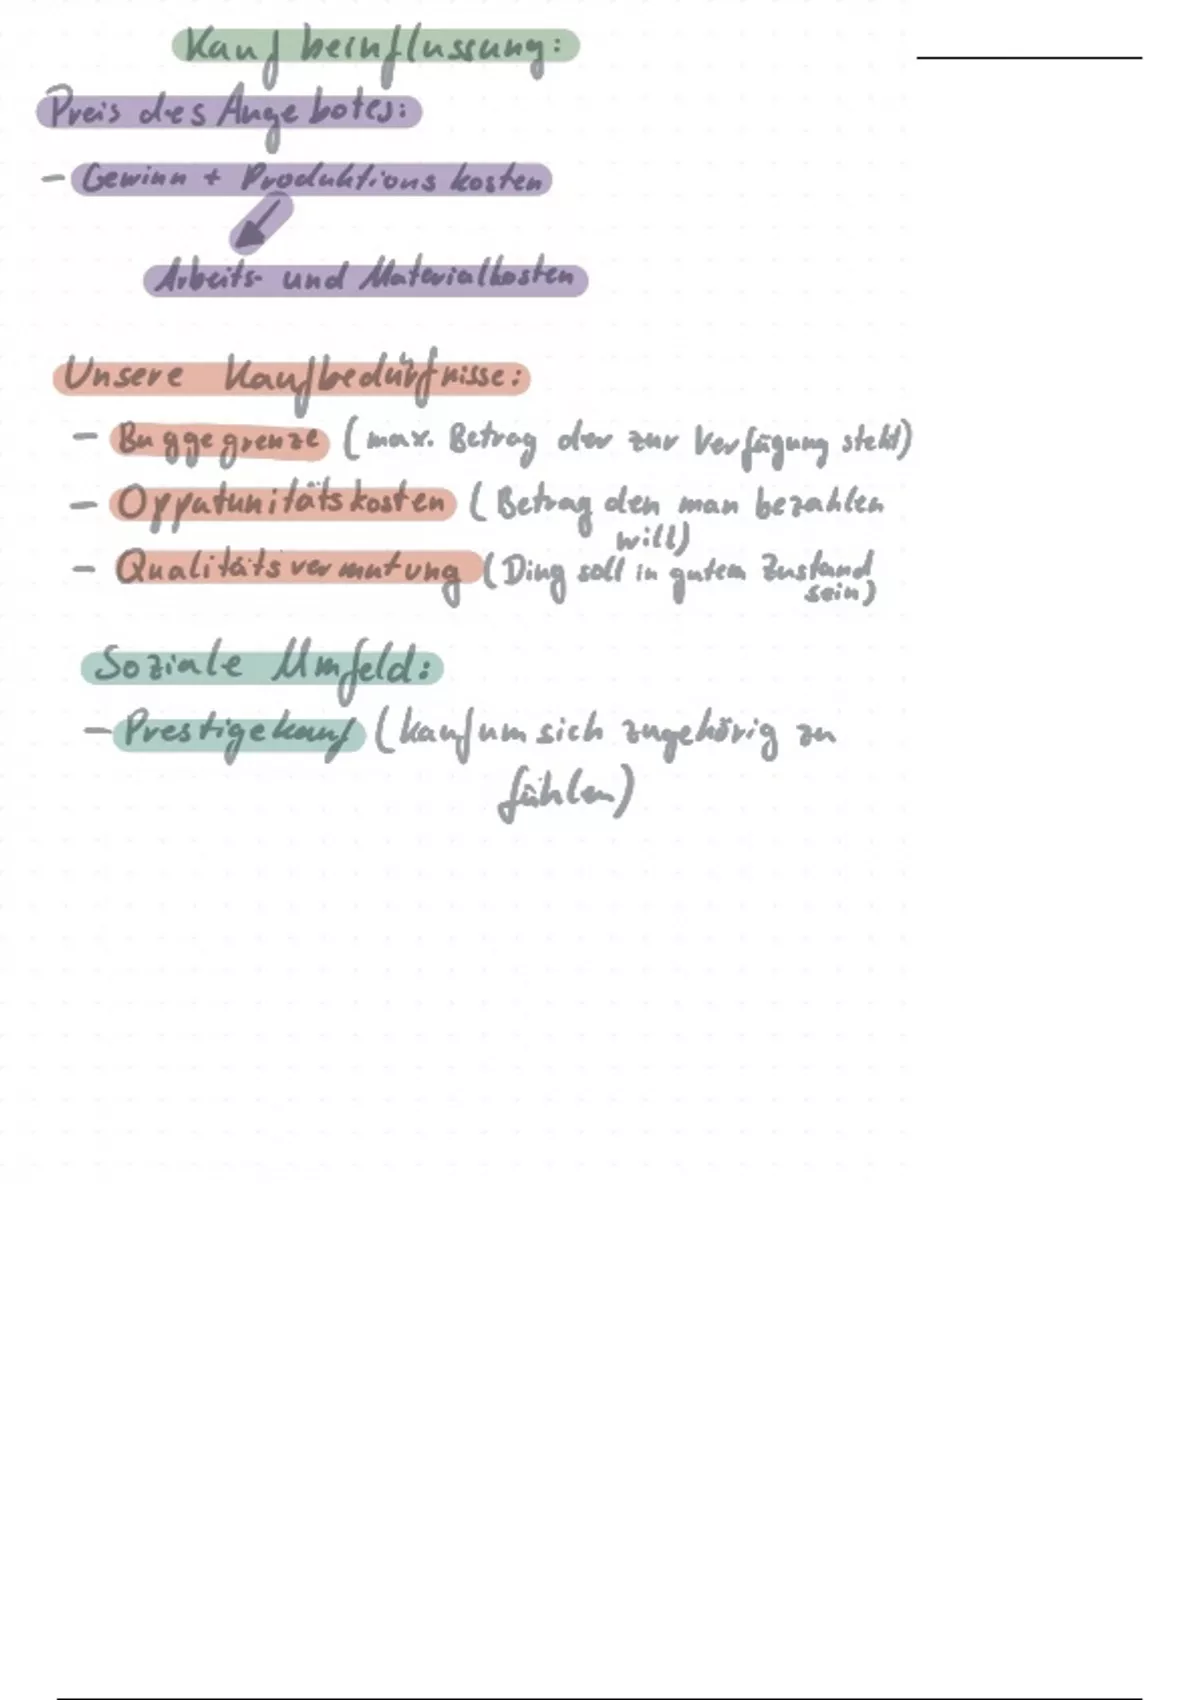 Kaufbeinflussung:
Preis des Angebotes:
- Gewinn + Produktionskosten
Arbeits- und Materialkosten
Unsere Kaufbedürfnisse:
- Buggegrenze (max. Betrag der zur Verfügung steht)
- Oppatunitätskosten (Betrag den man bezahlen
will)
- Qualitätsvermutung (Ding soll in gutem Zustand
sein)
Soziale Umfeld:
- Prestigekauf (kauf um sich zugehörig zu
fühlen)